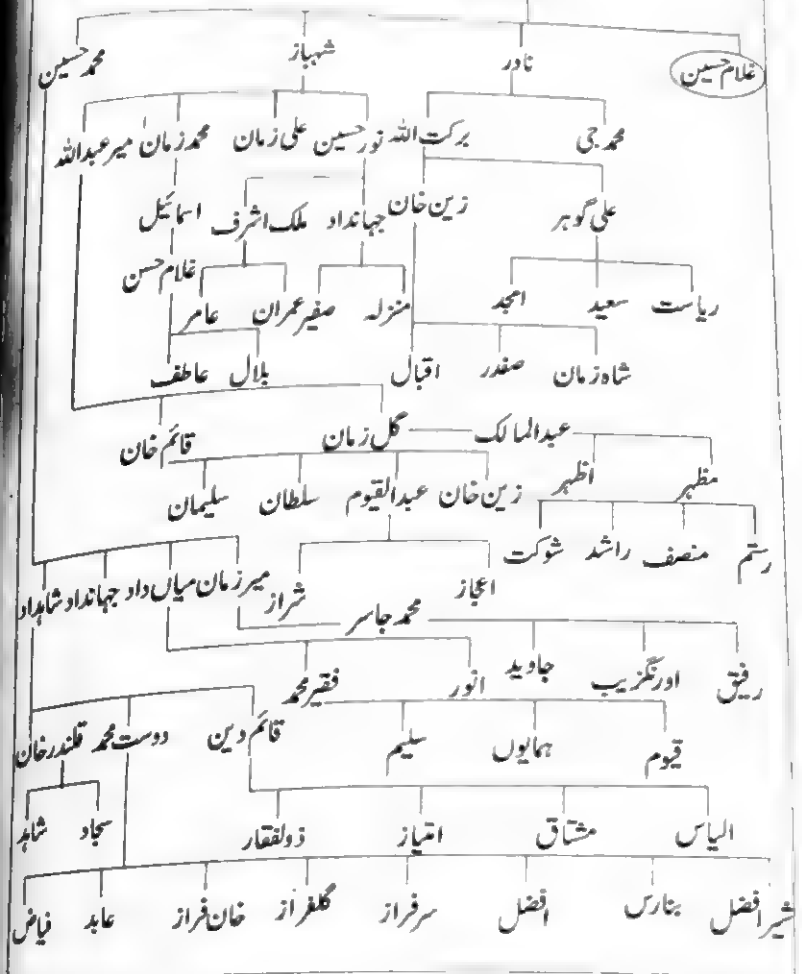 غلام حسین نادر شہباز محمد حسین
محمد جی برکت اللہ نور حسین علی زمان محمد زمان میر عبداللہ
علی گوہر زین خان جہانداد ملک اشرف اسمائیل
غلام حسن
ریاست سعید امجد منزلہ صفیر عمران عامر
شاہ زمان صفدر اقبال بلال عاطف
عبدالمالک گل زمان قائم خان
مظہر اظہر زین خان عبدالقیوم سلطان سلیمان
رستم منصف راشد شوکت اعجاز شراز
میر زمان میاں داد جہانداد شاہداد
محمد جاسر
رفیق اورنگزیب جاوید انور فقیر محمد
قیوم ہمایوں سلیم قائم دین دوست محمد قلندر خان
الیاس مشتاق امتیاز ذولفقار سجاد شاہد
شیر افضل بنارس افضل سرفراز گلفراز خان فراز عابد فیاض